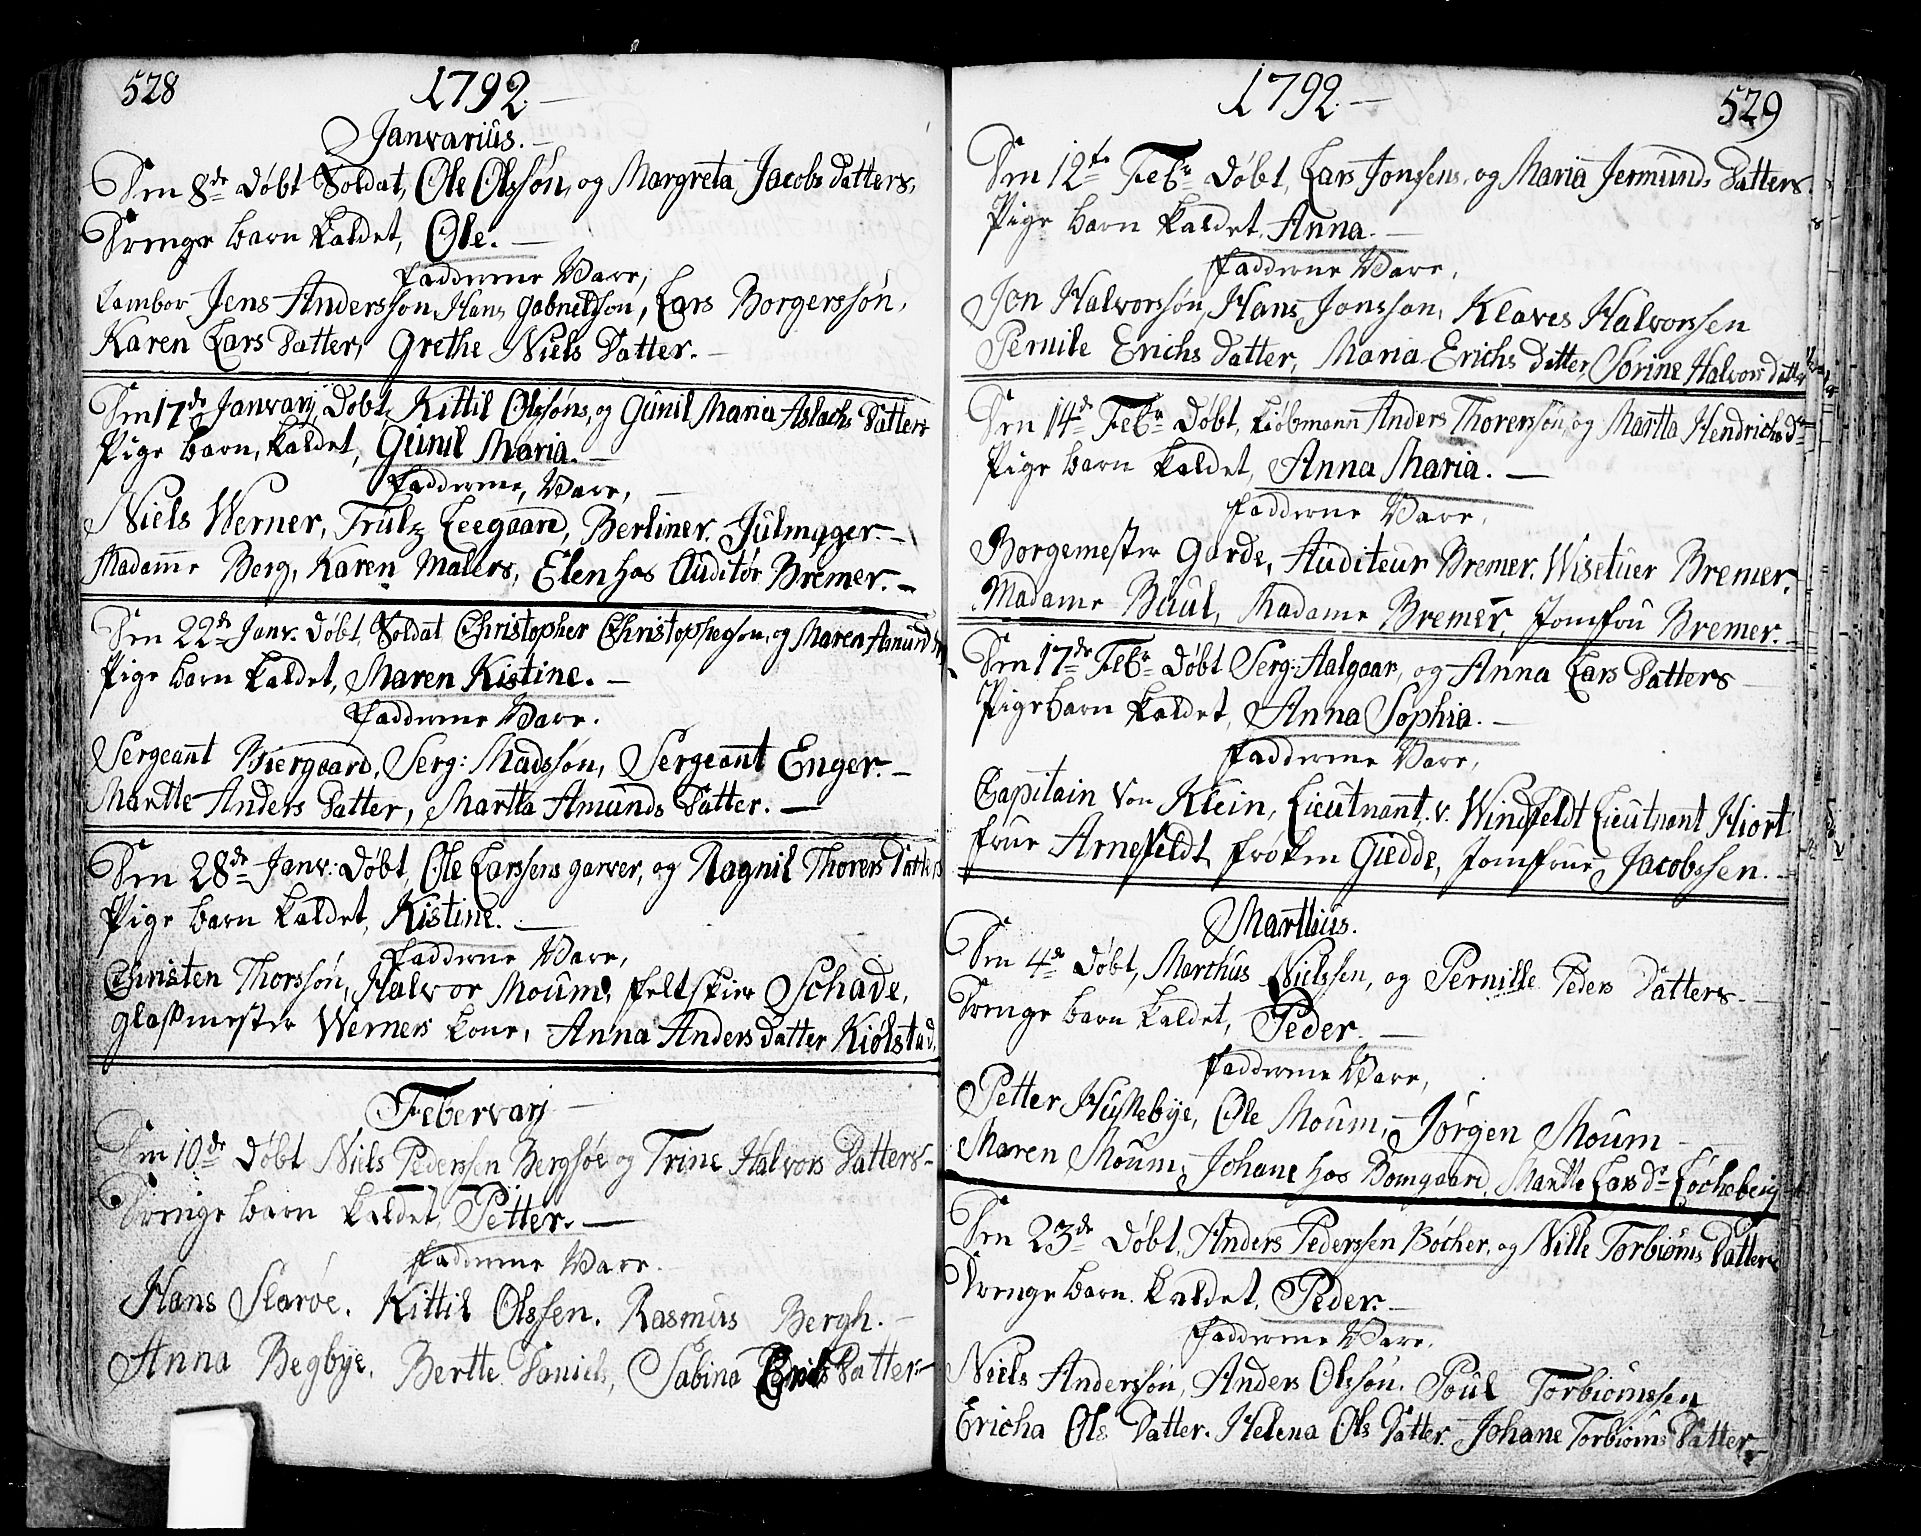 528
1792.
Janvarius.
Den 8de Døbt Soldat, Ole Olssøn, og Margreta Jacobs Datters,
Drenge barn kaldet, Ole.
Fadderne Vare,
Tambor Jens Anderssøn, Hans Gabrielssøn, Lars Borgerssøn,
Karen Lars Datter, Grethe Niels Datter.
Den 17de Janvarij Døbt, Kittil Olssøns, og Günil Maria Aslachs Datters
Pige barn, kaldet, Günil Maria.
Fadderne, Vare,
Niels Werner, Trulz Leegaard, Berliner, Jülmyger.
Madamme Berg, Karen Malers, Elen hos Auditør Bremer.
Den 22de Janv. Døbt, Soldat Christopher Christophersøn, og Maren Asmund
Pige barn kaldet, Maren Kistine.
Fadderne Vare.
Sergeant Biergaard, Serg: Madssøn, Sergeant Enger.
Marthe Anders Datter, Martta Amunds Datter.
Den 28de Janv: Døbt, Ole Larssens garver, og Ragnil Thorers Datters
Pige barn kaldet, Kistine.
Fadderne Vare,
Christen Thorssøn, Halvor Moum, feltskier Schade,
Glaßmester Werners kone, Anna Anders Datter Kiølstad.
Febervarj
Den 10de Døbt Niels Pederssen Bergsøe og Trine Halvors Datters
Drenge barn kaldet, Petter.
Fadderne Vare.
Hans Slaroe. Kittil Olssen. Rasmus Bergh.
Anna Begbye. Berthe Daniels, Sabina Datter
529
1792.
Den 12te Febr Døbt, Lars Jonssens, og Maria Jermunds Datters
Pige barn kaldet, Anna.
Fadderne Vare,
Jon Halvorssøn, Hans Jonsson, Klaves Halvorssen
Pernile Erichs Datter, Maria Erichs Datter, Sørine Halvors Datter
Den 14de Febr Døbt, Kiøbmann Anders Thorerssøn, og Martta Hendrichs Dr
Pige barn kaldet, Anna Maria.
Fadderne Vare,
Borgemester Garde, Auditeur Bremer, Wisetuer Bremer,
Madame Buul, Madame Bremer, Jomfru Bremer.
Den 17de Febr Døbt Serg: Aalgaar, og Anna Lars Datters
Pige barn kaldet, Anna Sophia.
Fadderne Vare,
Capitain Von Klein, Lieutnant v. Windfeldt Lieutnant Hiort
Frue Arnefeldt, Frøken Giedde, Jomfrue Jacobssen.
Marthiüs.
Den 4de Døbt, Marthus Nielssen, og Pernille Peders Datters
Drenge barn kaldet, Peder.
Fadderne Vare,
Petter Hüsebye, Ole Moum, Jørgen Moum
Maren Moum, Johane hos Bomgaard, Marthe Lars Dr Løcheberg
Den 23de Døbt, Anders Pederssen Bøcher, og Nille Torbiørns Datters
Drenge barn kaldet, Peder.
Fadderne Vare,
Niels Anderssøn, Anders Olssøn, Poul Torbiørnssen
Ericha Ols Datter. Helena Ols Datter. Johane Torbiørns Datter